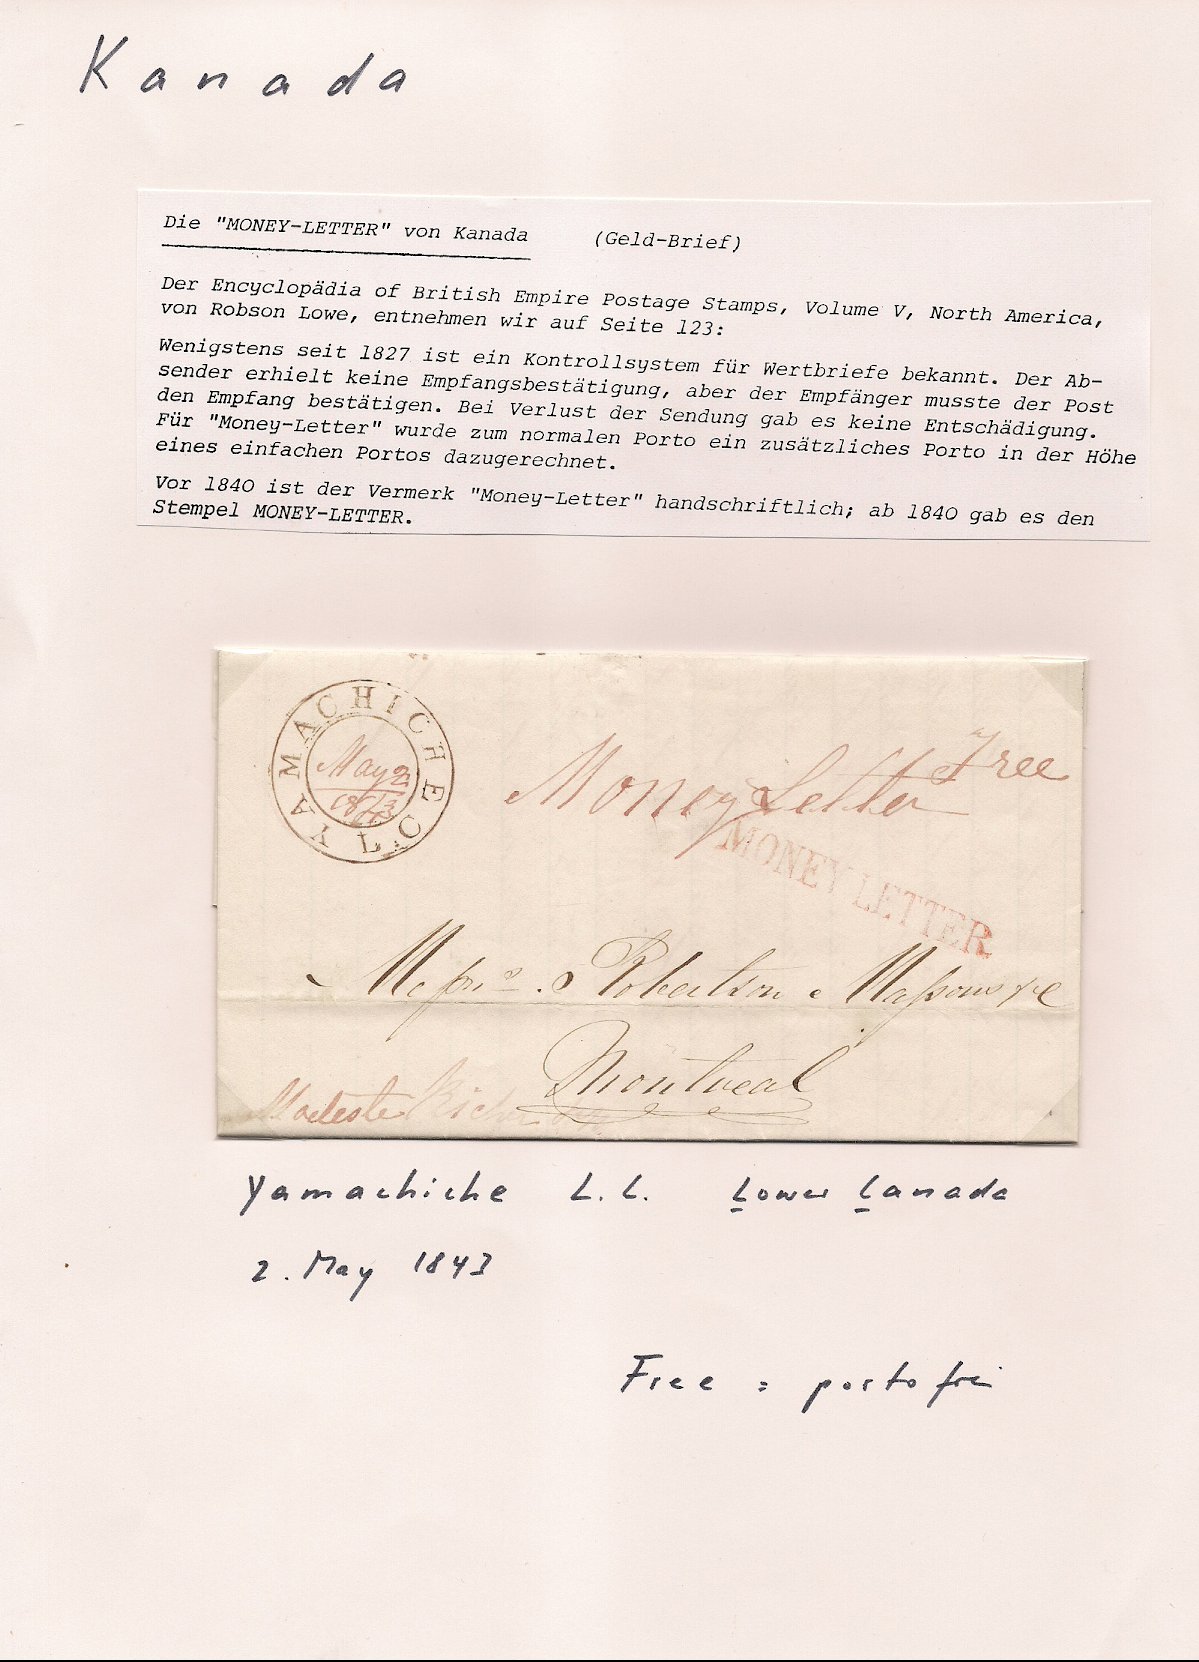 Kanada
Die "MONEY-LETTER" von Kanada (Geld-Brief)
Der Encyclopädia of British Empire Postage Stamps, Volume V, North America,
von Robson Lowe, entnehmen wir auf Seite 123:
Wenigstens seit 1827 ist ein Kontrollsystem für Wertbriefe bekannt. Der Ab-
sender erhielt keine Empfangsbestätigung, aber der Empfänger musste der Post
den Empfang bestätigen. Bei Verlust der Sendung gab es keine Entschädigung.
Für "Money-Letter" wurde zum normalen Porto ein zusätzliches Porto in der Höhe
eines einfachen Portos dazugerechnet.
Vor 1840 ist der Vermerk "Money-Letter" handschriftlich; ab 1840 gab es den
Stempel MONEY-LETTER.
YAMACHICHE L.C
May 2
1843
Free
Money Letter
MONEY LETTER
Messrs. Robertson Massons & C
Montreal
Modeste
Yamachiche L.C. Lower Canada
2. May 1843
Free = portofrei